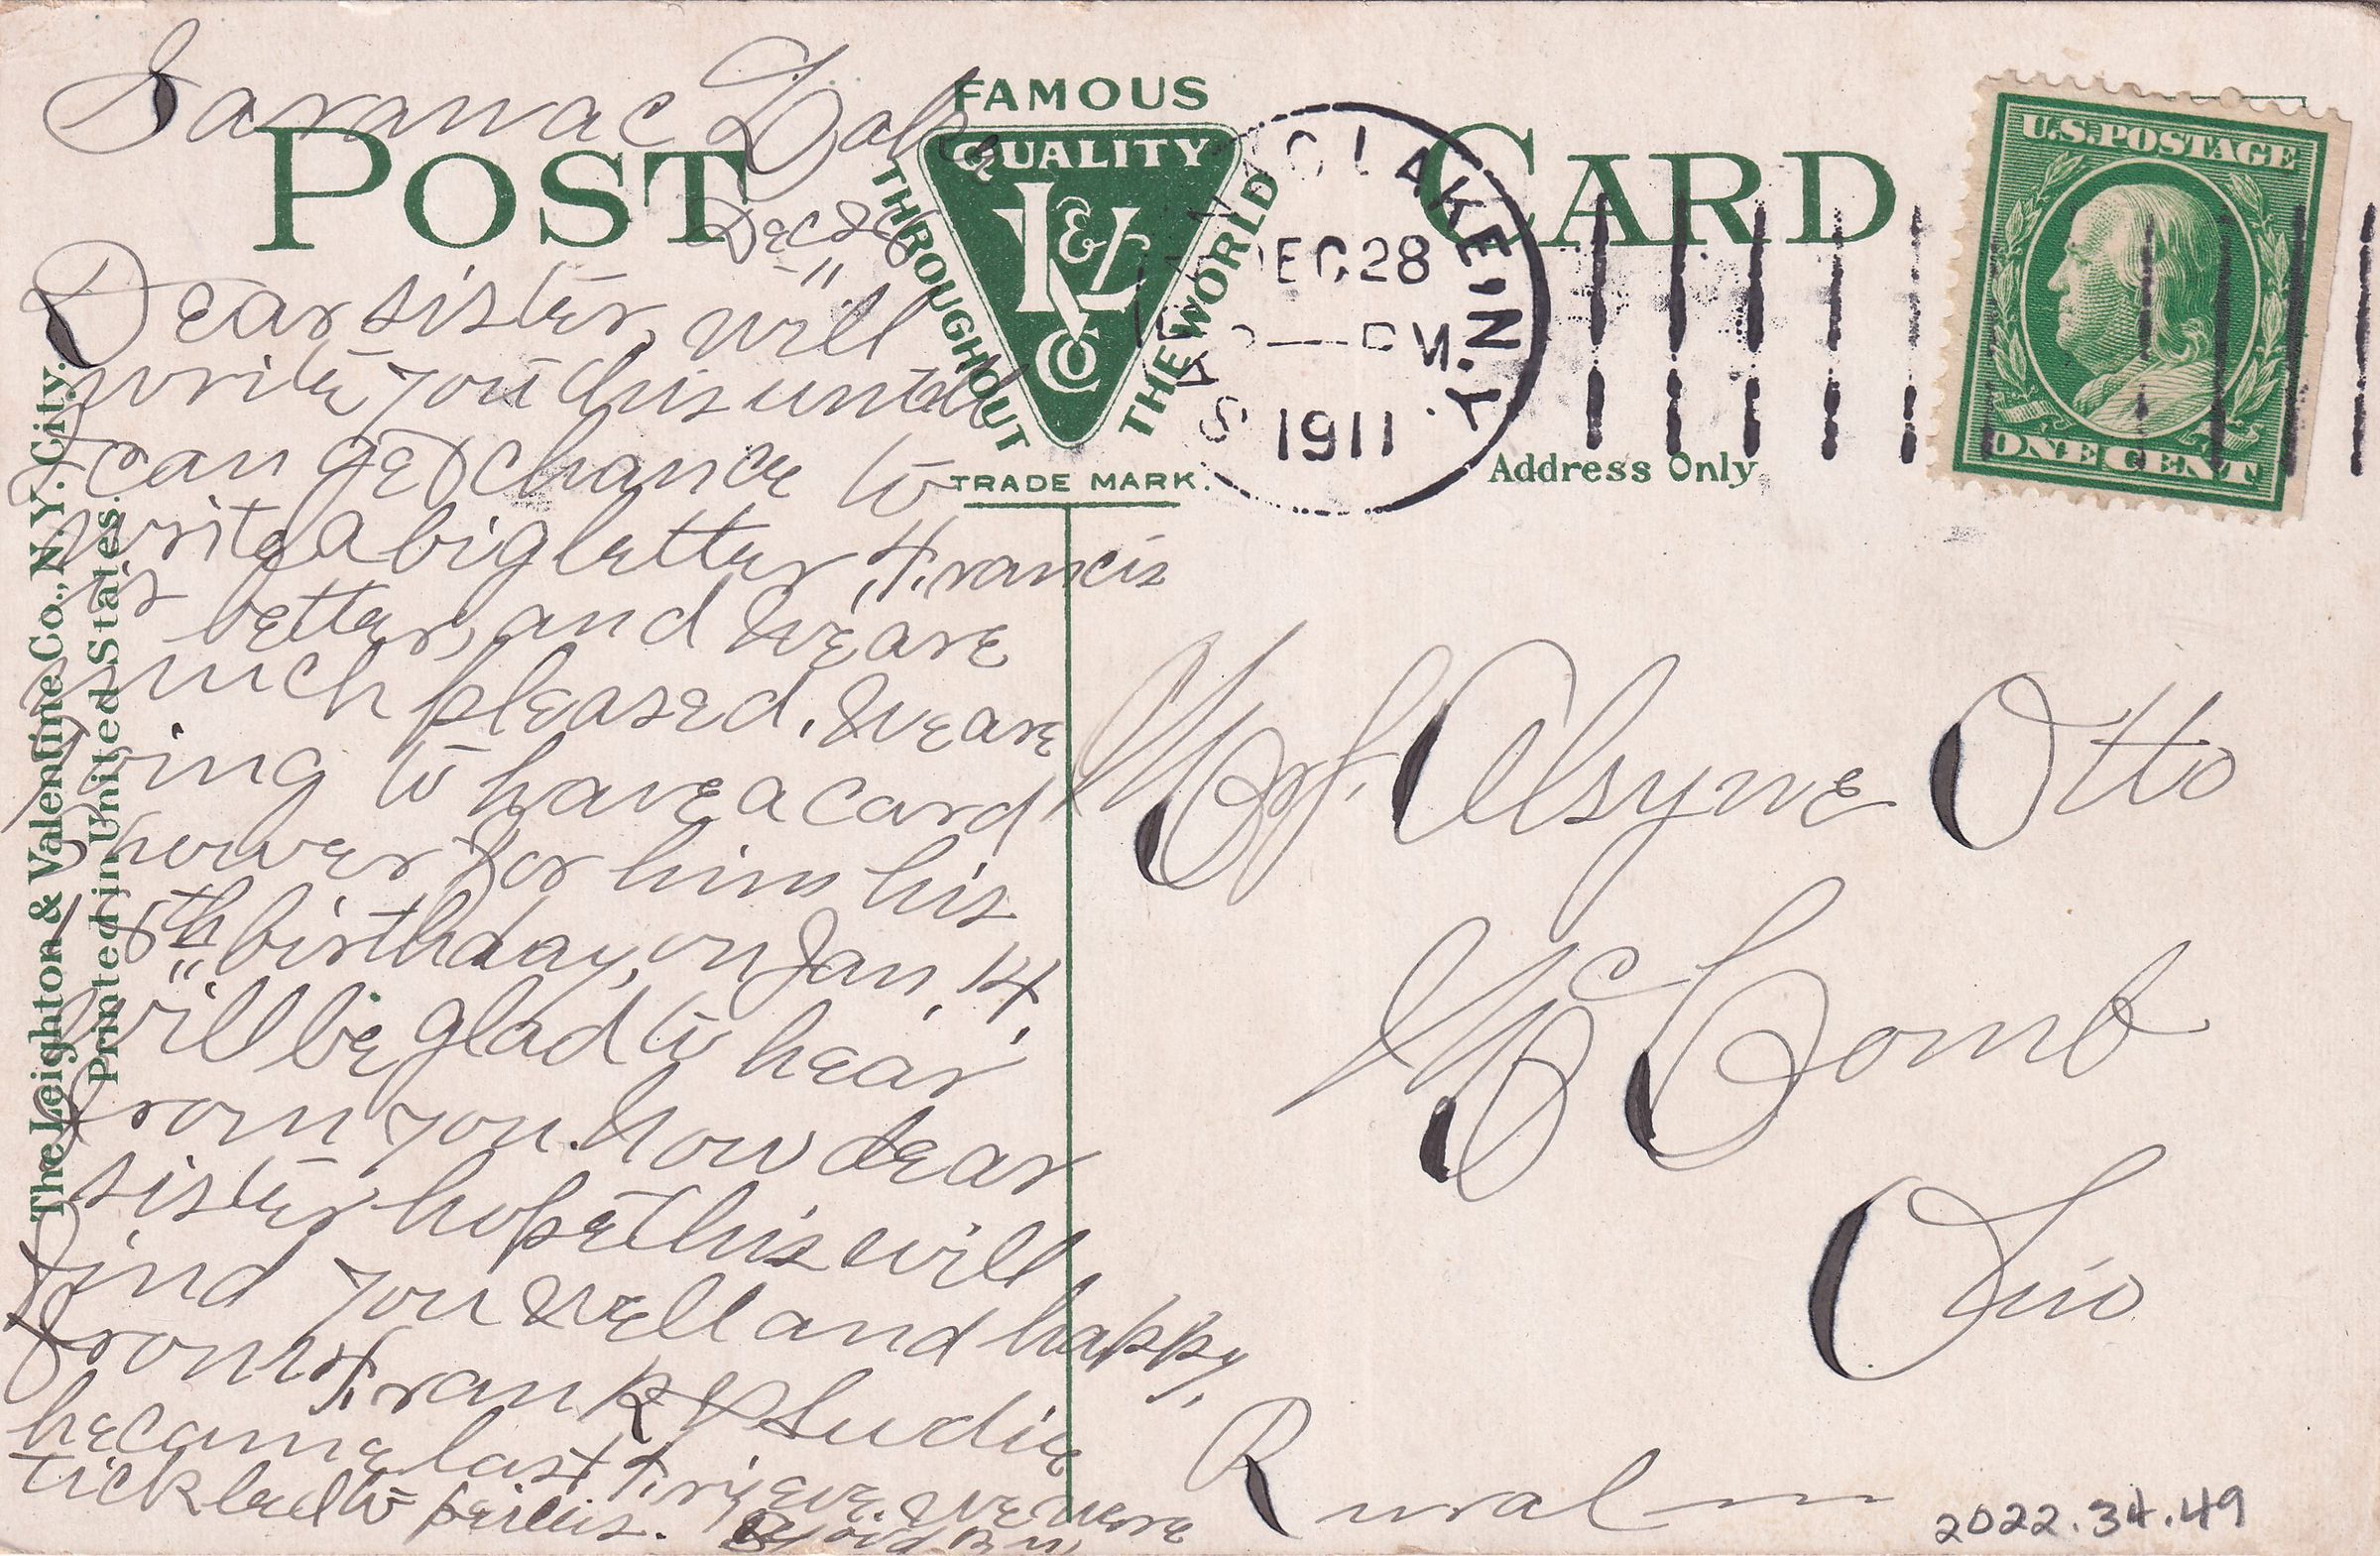 Saranac Lake
Dec 28
Dear sister, will
write you this until
I can get chance to
write a big letter, Francis
is better, and we are
much pleased. We are
going to have a card
shower for him his
15th birthday, on Jan. 14.
will be glad to hear
from you. how dear
sister hope this will
find you well and happy.
from Frank & Ludie
he came last Fri. eve. We were
tickled to
POST CARD
FAMOUS
QUALITY
THROUGHOUT
THE WORLD
L & V
Co
TRADE MARK.
SARANAC LAKE, N.Y.
DEC 28
PM
1911
Address Only
U.S. POSTAGE
ONE CENT
Mrs. Alsyne Otto
McComb
Ohio
Rural
The Leighton & Valentine Co., N.Y. City.
Printed in United States.
2022.34.49